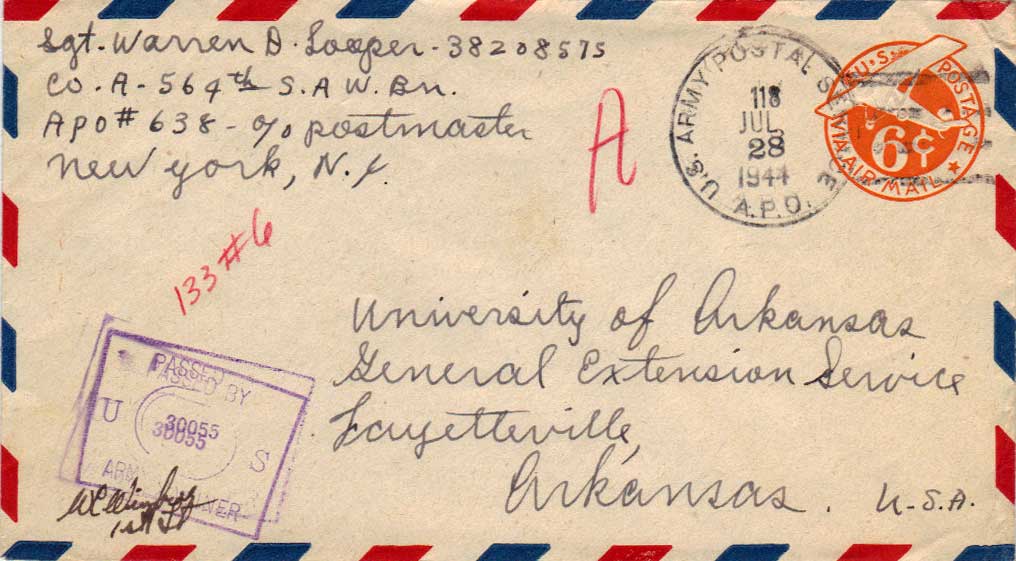 Sgt. Warren D. Looper - 38208575
Co. A - 564th S.A W. Bn.
APO # 638 - c/o postmaster
New York, N.Y.
U.S. ARMY POSTAL SERVICE
118
JUL
28
1944
A.P.O.
U.S. POSTAGE
6¢
VIA AIR MAIL
A
133#6
University of Arkansas
General Extension Service
Fayetteville,
Arkansas. U.S.A.
PASSED BY
U S
30055
ARMY EXAMINER
1st Lt